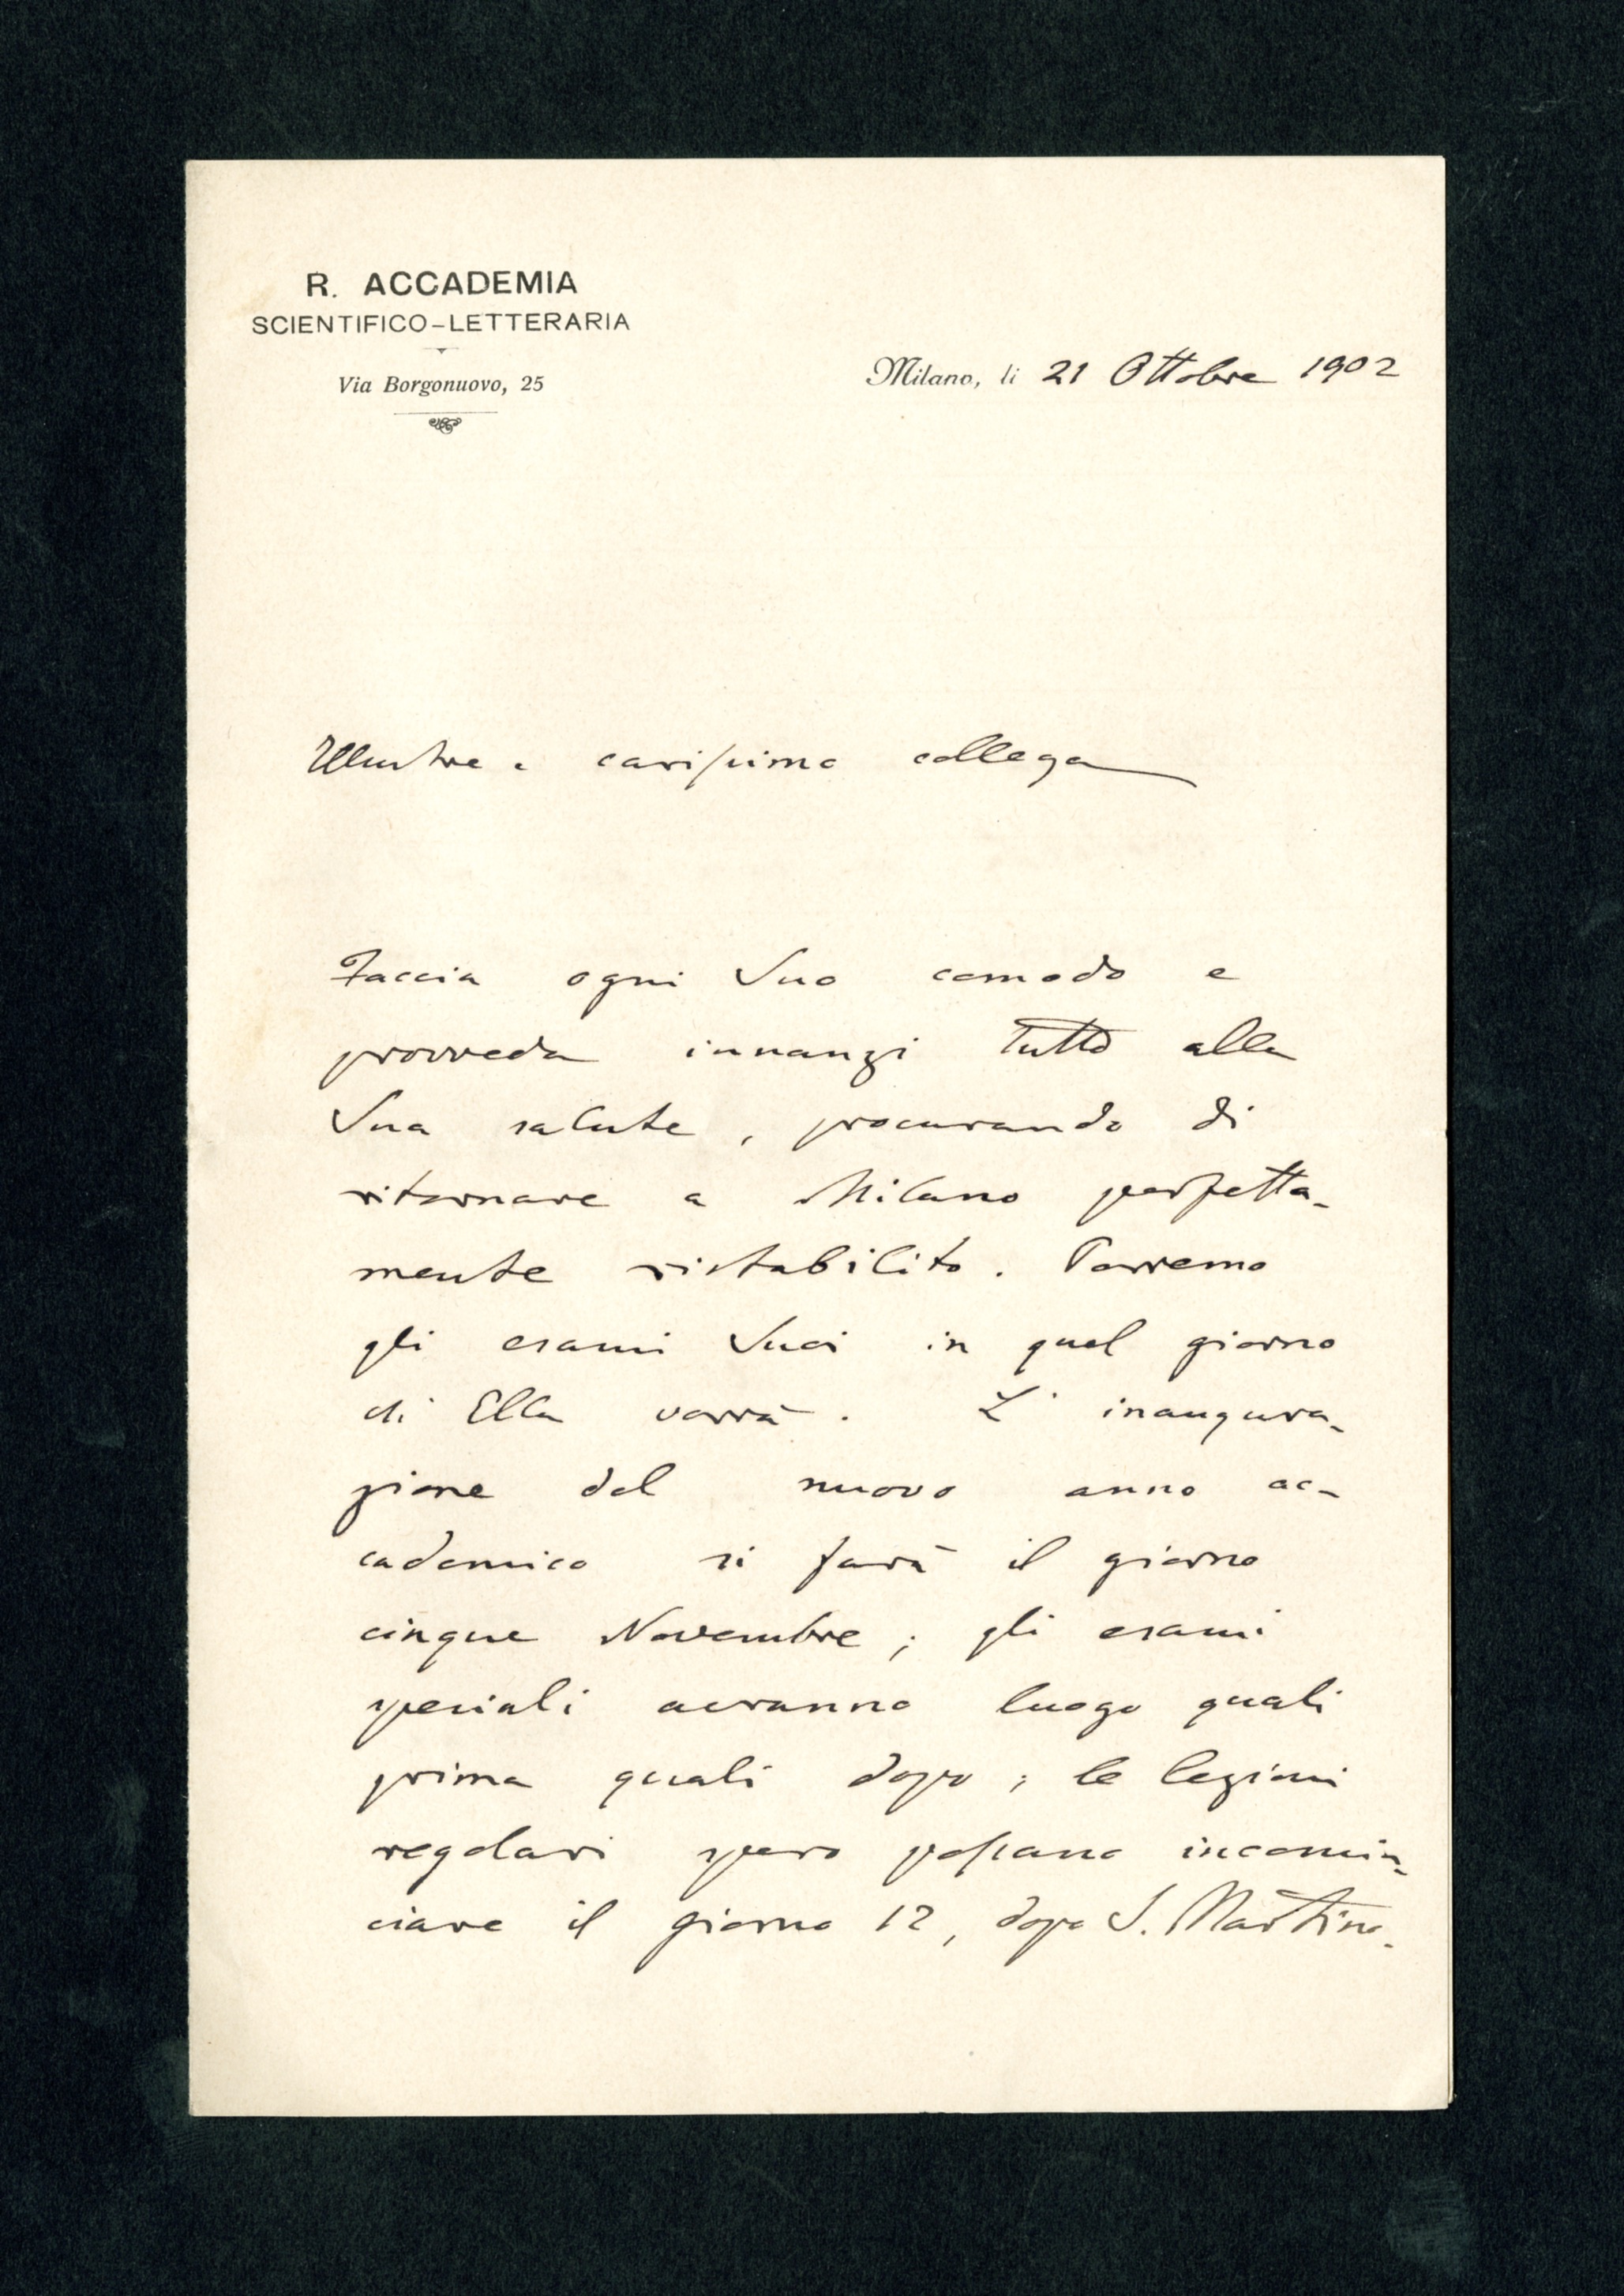 R. ACCADEMIA
SCIENTIFICO-LETTERARIA
Via Borgonuovo, 25
Milano, li 21 Ottobre 1902
Illustre e carissimo collega
Faccia ogni Suo comodo e
provveda innanzi tutto alla
Sua salute, procurando di
ritornare a Milano perfetta-
mente ristabilito. Porremo
gli esami Suoi in quel giorno
di Ella vorrà. L'inaugura-
zione del nuovo anno ac-
cademico si farà il giorno
cinque Novembre; gli esami
speciali avranno luogo quali
prima quali dopo; le lezioni
regolari spero possano incomin-
ciare il giorno 12, dopo S. Martino.